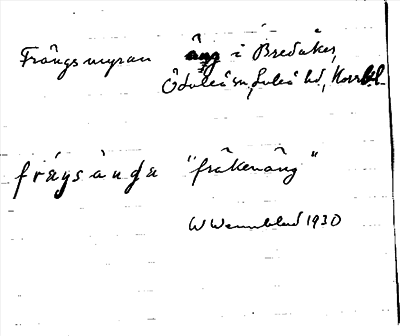 Frångsmyran äng i Bredåker,
Ö Luleå sn, Luleå hd, Norrb. l.
frågsånga "fräkenäng"
W Wennblad 1930